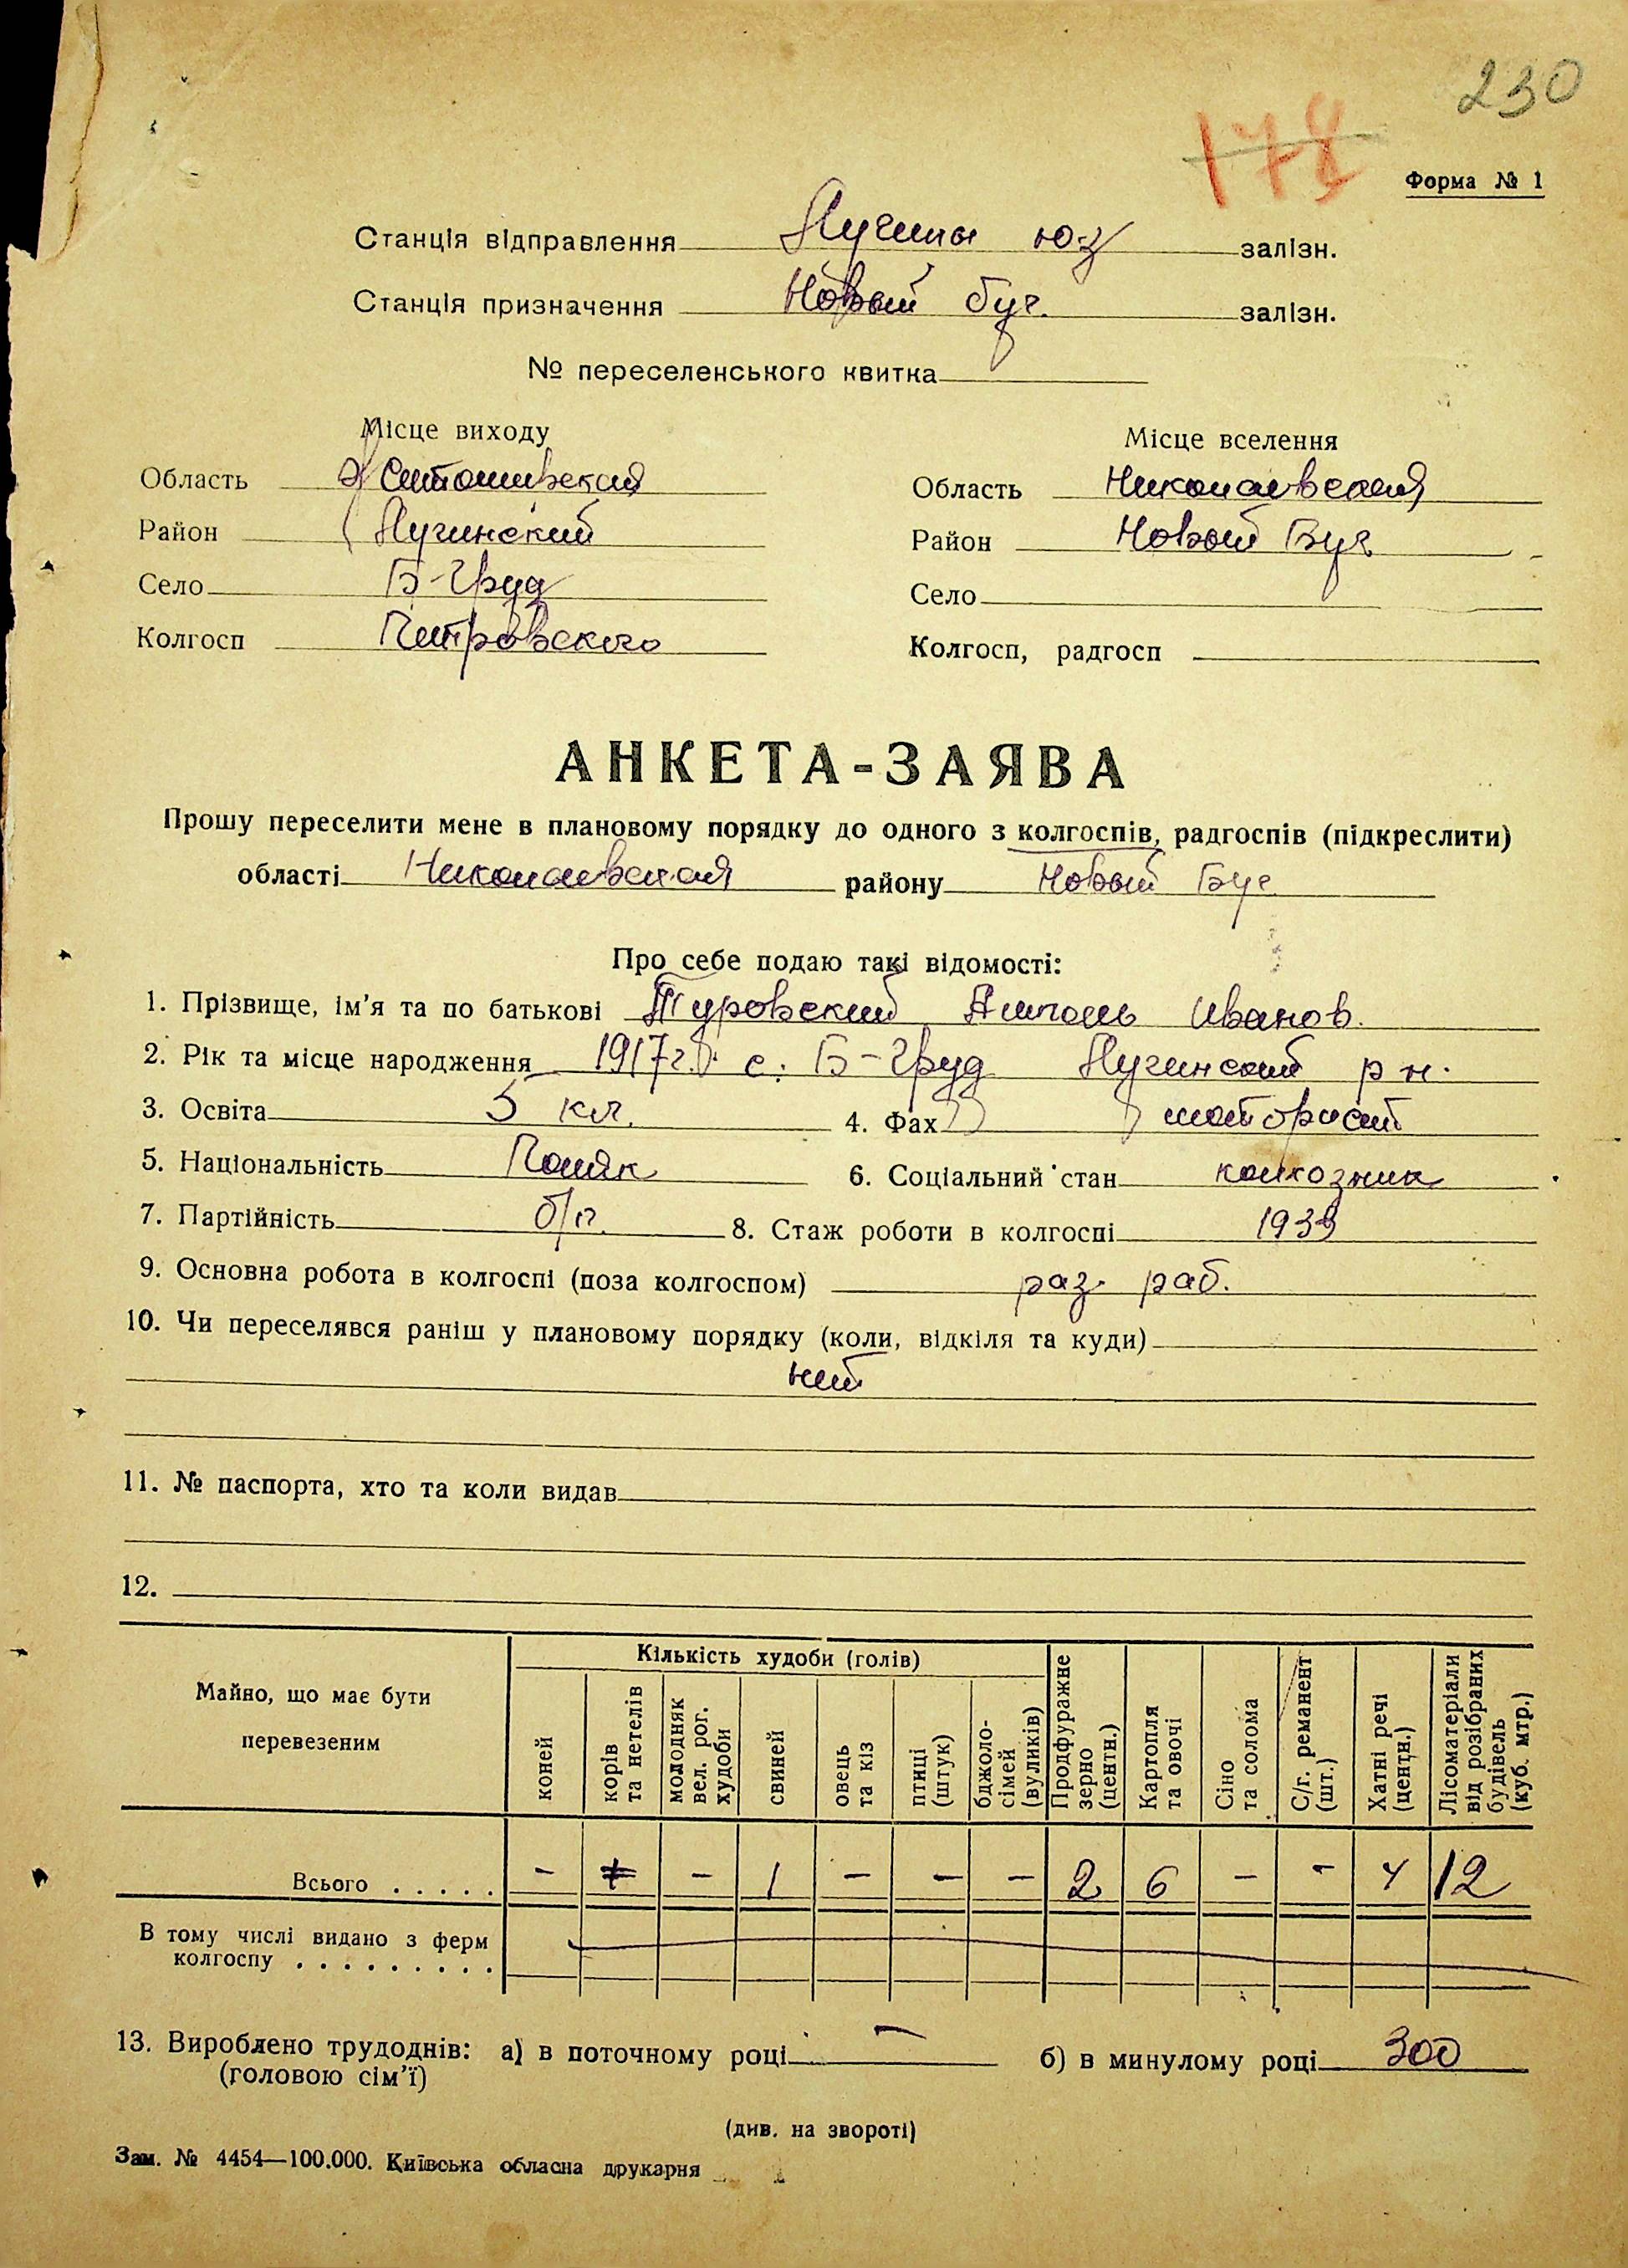 230
178
Форма № 1
Станція відправлення Лучины ю-з залізн.
Станція призначення Новый Буг. залізн.
№ переселенського квитка
Місце виходу
Місце вселення
Область Житомирская
Область Николаевская
Район Лугинский
Район Новый Буг
Село Б-Груд
Село
Колгосп Петровского
Колгосп, радгосп
АНКЕТА-ЗАЯВА
Прошу переселити мене в плановому порядку до одного з колгоспів, радгоспів (підкреслити)
області Николаевская району Новый Буг
Про себе подаю такі відомості:
1. Прізвище, ім'я та по батькові Туровский Антонь Иванов.
2. Рік та місце народження 1917 г. с. Б-Груд Лугинский р н.
3. Освіта 5 кл. 4. Фах моторист
5. Національність Поляк 6. Соціальний стан колхозник
7. Партійність б/п. 8. Стаж роботи в колгоспі 1939
9. Основна робота в колгоспі (поза колгоспом) раз. раб.
10. Чи переселявся раніш у плановому порядку (коли, відкіля та куди)
нет
11. № паспорта, хто та коли видав
12.
Майно, що має бути перевезеним
Кількість худоби (голів)
коней
корів та нетелів
молодняк вел. рог. худоби
свиней
овець та кіз
птиці (штук)
бджоло-сімей (вуликів)
Продфуражне зерно (центн.)
Картопля та овочі
Сіно та солома
С/г. реманент (шт.)
Хатні речі (центн.)
Лісоматеріали від розібраних будівель (куб. мтр.)
Всього . . . . . - - 1 - - - 2 6 - - 4 12
В тому числі видано з ферм
колгоспу . . . . . . . . .
13. Вироблено трудоднів: а) в поточному році — б) в минулому році 300
(головою сім'ї)
(див. на звороті)
Зам. № 4454—100.000. Київська обласна друкарня